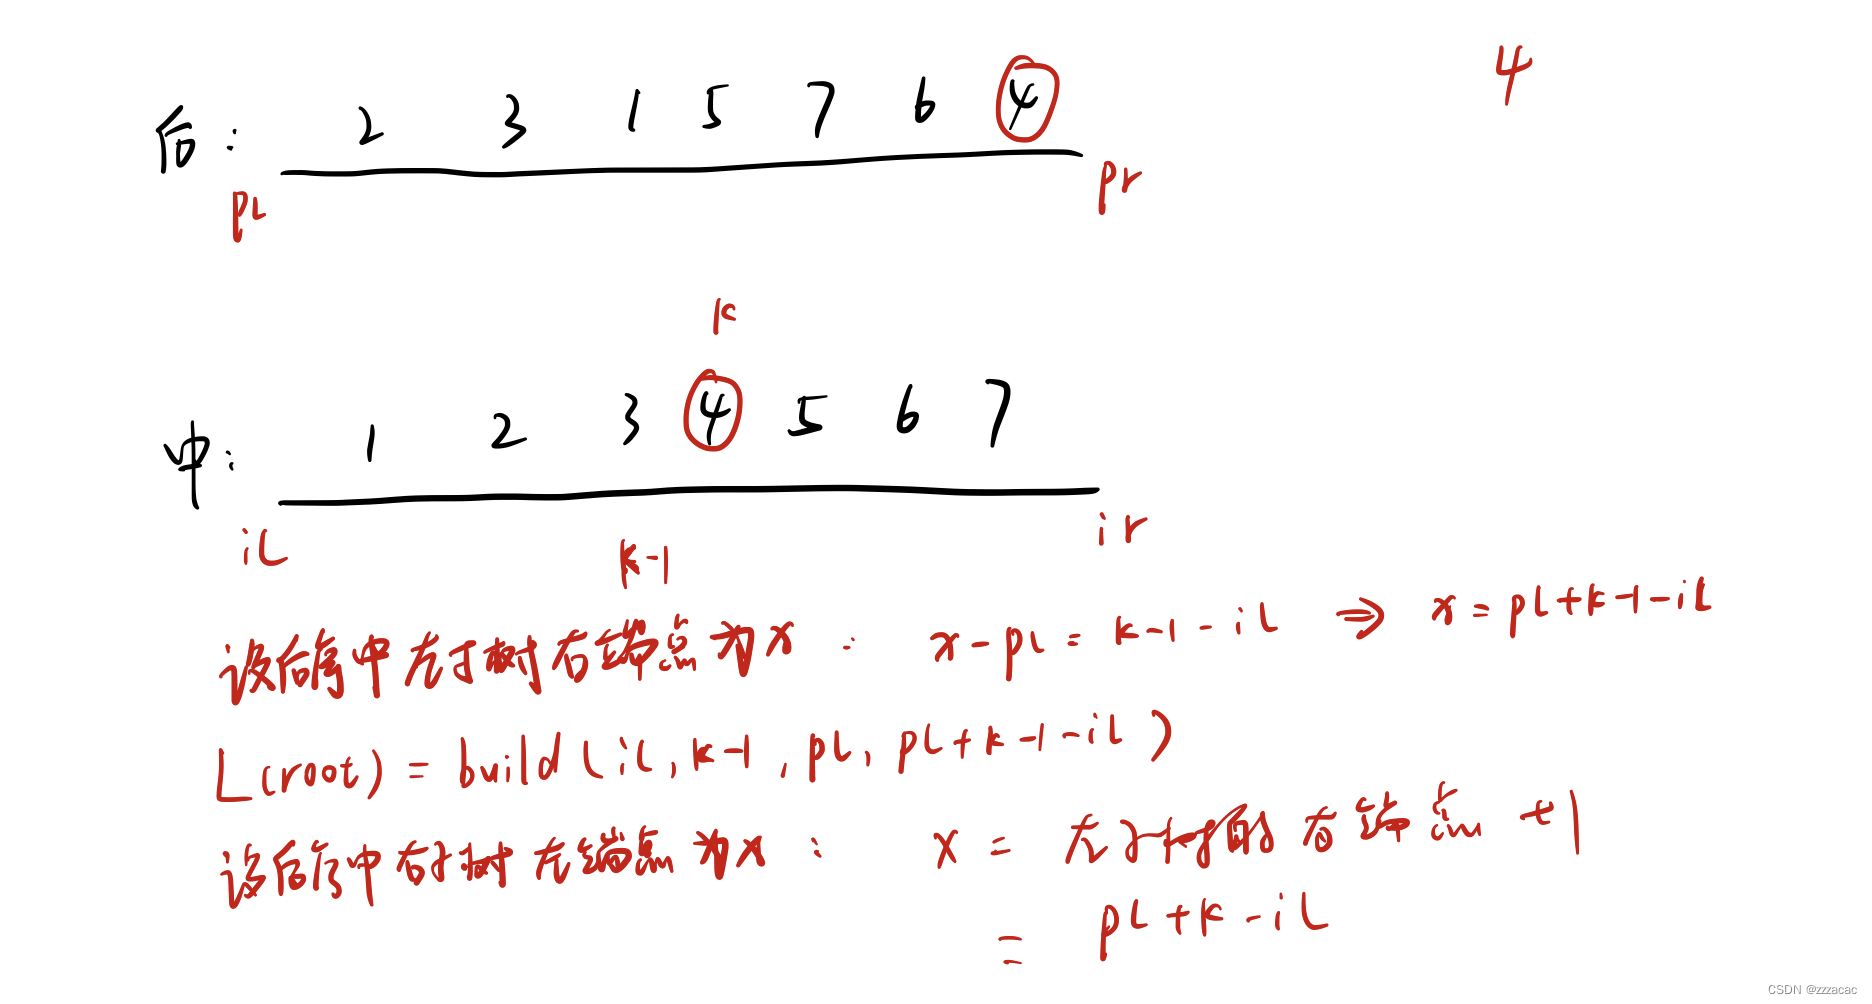 后: 2 3 1 5 7 6 4
4
pL pr
k
中: 1 2 3 4 5 6 7
iL k-1 ir
设后序中左子树右端点为x : x-pL=k-1-iL ⇒ x=pL+k-1-iL
L(root)=build(iL,k-1,pL,pL+k-1-iL)
设后序中右子树左端点为x : x = 左子树的右端点+1
= pL+k-iL
CSDN @zzzacac